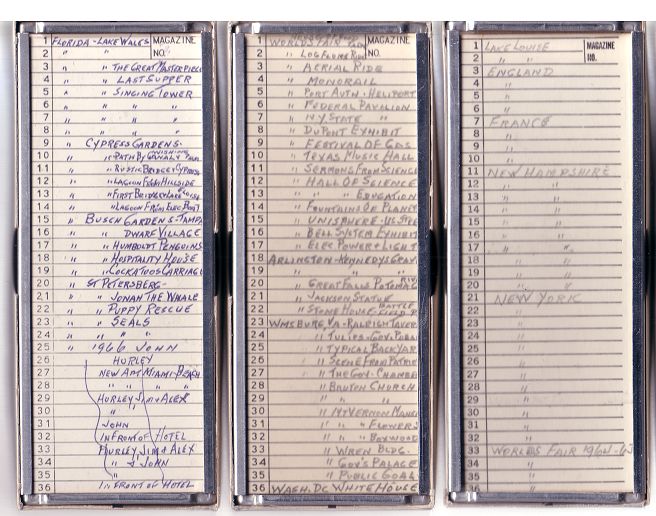 MAGAZINE NO.
1 FLORIDA - LAKE WALES
2 " "
3 " " THE GREAT MASTERPIECE
4 " " LAST SUPPER
5 " " SINGING TOWER
6 " " " "
7 " " " "
8 " " " "
9 " CYPRESS GARDENS.
10 " " PATH BY
11 " " RUSTIC BRIDGE & CYPRESS
12 " " LAGOON HILLSIDE
13 " " FIRST BRIDGE
14 " " LAGOON FROM ELEC BOAT
15 " BUSCH GARDENS-TAMPA
16 " " DWARF VILLAGE
17 " " HUMBOLDT PENGUINS
18 " " HOSPITALITY HOUSE
19 " " COCKATOOS CARRIAGE
20 " ST PETERSBERG-
21 " " JONAH THE WHALE
22 " " PUPPY RESCUE
23 " " SEALS
24 " " " "
25 " 1966 JOHN
26 HURLEY
27 NEW APT MIAMI BEACH
28 " " " "
29 HURLEY JIM & ALEX
30 "
31 JOHN
32 IN FRONT OF HOTEL
33 HURLEY, JIM & ALEX
34 " & JOHN
35 "
36 IN FRONT OF HOTEL
MAGAZINE NO.
1 WORLDS FAIR
2 " LOG FLUME RIDE
3 " AERIAL RIDE
4 " MONORAIL
5 " PORT AUTH. HELIPORT
6 " FEDERAL PAVILION
7 " N.Y STATE "
8 " DUPONT EXHIBIT
9 " FESTIVAL OF GAS
10 " TEXAS MUSIC HALL
11 " SERMONS FROM SCIENCE
12 " HALL OF SCIENCE
13 " " " EDUCATION
14 " FOUNTAINS OF PLANET
15 " UNISPHERE-US STEEL
16 " BELL SYSTEM EXHIBIT
17 " ELEC POWER & LIGHT
18 ARLINGTON-KENNEDYS GRAVE
19 " " "
20 " GREAT FALLS POTOMAC RIV
21 " JACKSON STATUE
22 " STONE HOUSE BATTLE FIELD
23 WMSBURG, VA-RALEIGH TAVERN
24 " TULIPS-GOV. PALACE
25 " TYPICAL BACKYARD
26 " SCENE FROM
27 " THE GOV.
28 " BRUTON CHURCH
29 " " "
30 " MT VERNON MANSION
31 " " " FLOWERS
32 " " " BOXWOOD
33 " WREN BLDG.
34 " GOV'S PALACE
35 " PUBLIC GOAL
36 WASH. DC WHITE HOUSE
MAGAZINE NO.
1 LAKE LOUISE
2 " "
3 ENGLAND
4 "
5 "
6 "
7 FRANCE
8 "
9 "
10 "
11 NEW HAMPSHIRE
12 " "
13 " "
14 " "
15 " "
16 " "
17 " "
18 " "
19 " "
20 " "
21 NEW YORK
22 "
23 "
24 "
25 "
26 "
27 "
28 "
29 "
30 "
31 "
32 "
33 WORLDS FAIR 1964-65
34 "
35 "
36 "